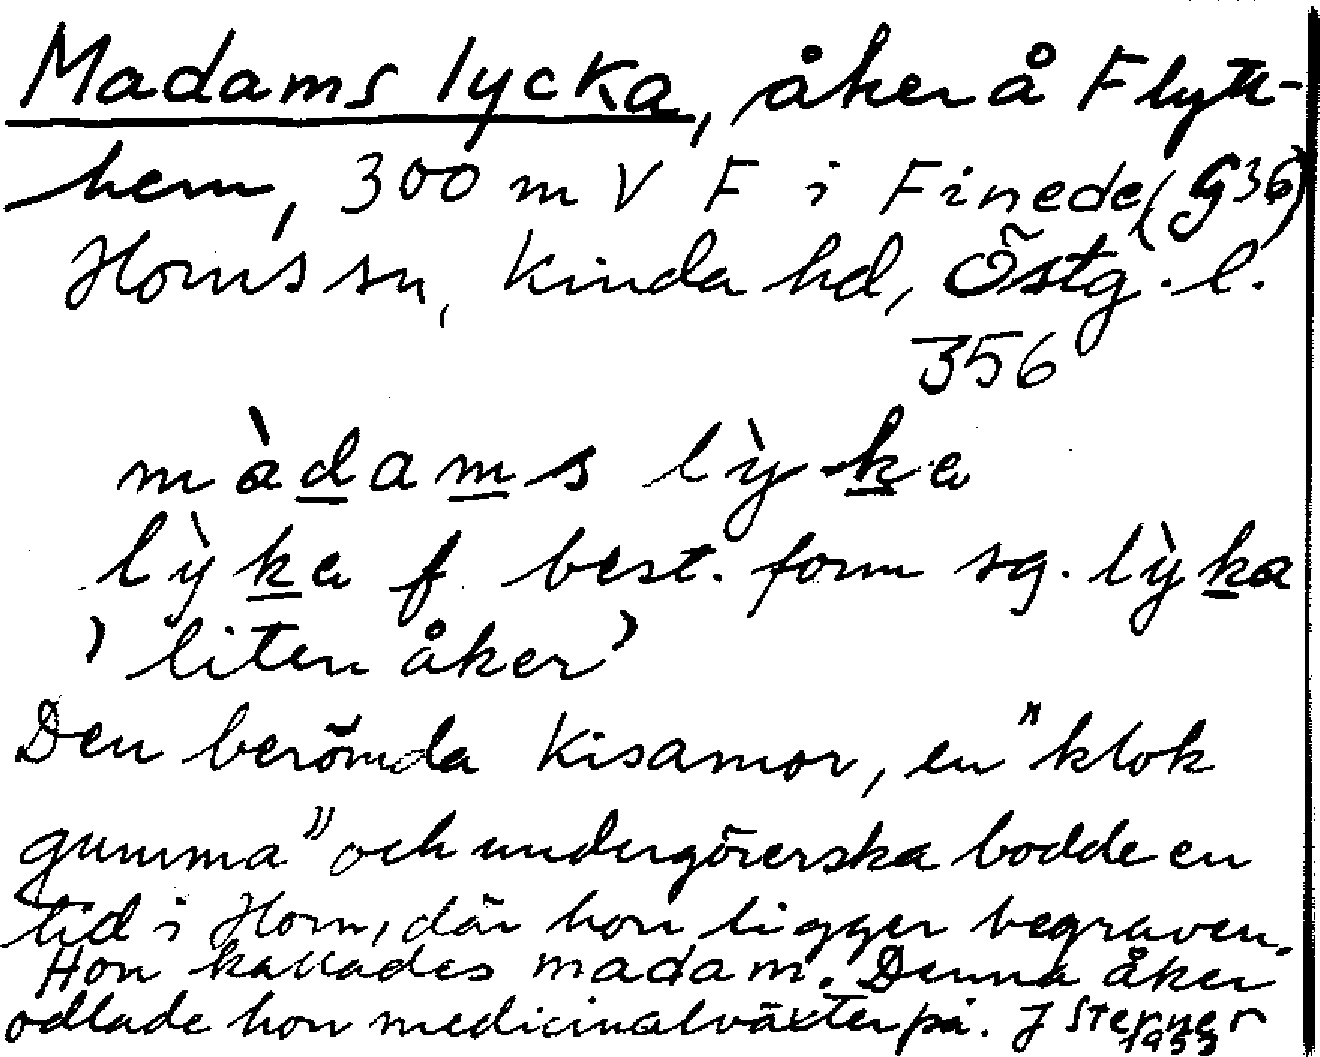 Madams lycka, åker å Flytt-
hem, 300 m V F i Finede (G36)
Horns sn, Kinda hd, Östg. l.
356
màdams lỳka
lỳka f. best. form sg. lỳka
'liten åker'
Den berömda Kisamor, en "klok
gumma" och undergörerska bodde en
tid i Horn, där hon ligger begraven.
Hon kallades madam. Denna åker
odlade hon medicinalväxter på. J Sterner